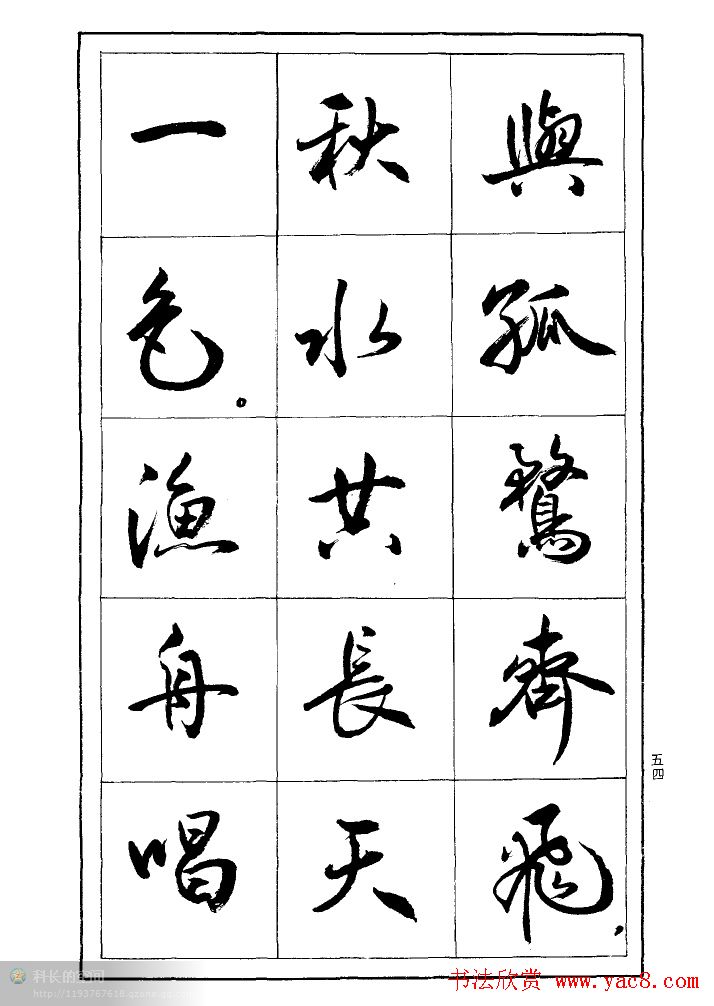 與孤鶩齊飛，
秋水共長天
一色。漁舟唱
五四
科长的空间
http://1193767618.qzone.qq.com
书法欣赏 www.yac8.com